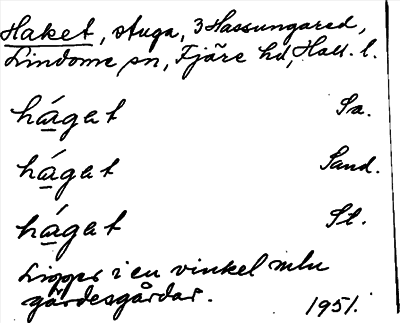 Haket, stuga, 3 Hassungared,
Lindome sn, Fjäre hd, Hall. l.
hágat Sa.
hágat Sand.
hágat St.
Ligger i en vinkel mlu
gärdesgårdar. 1951.